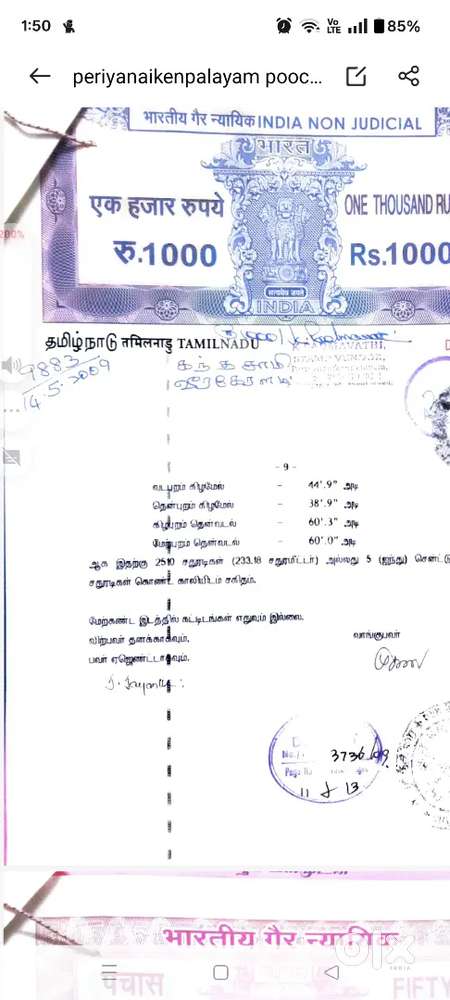 1:50
Vo LTE
85%
periyanaikenpalayam pooc...
भारतीय गैर न्यायिक INDIA NON JUDICIAL
भारत
एक हजार रुपये
ONE THOUSAND RU
रु.1000
Rs.1000
सत्यमेव जयते
INDIA
தமிழ்நாடு तमिलनाडु TAMILNADU
9883
14.5.2009
கந்தசாமி
- 9 -
வடபுறம் கிழமேல் - 44'.9" அடி
தென்புறம் கிழமேல் - 38'.9" அடி
கிழபுறம் தென்வடல் - 60'.3" அடி
மேற்புறம் தென்வடல் - 60'.0" அடி
ஆக இதற்கு 2510 சதுரடிகள் (233.18 சதுரமீட்டர்) அல்லது 5 (ஐந்து) சென்ட்டு
சதுரடிகள் கொண்ட காலியிடம் சகிதம்.
மேற்கண்ட இடத்தில் கட்டிடங்கள் எதுவும் இல்லை.
விற்பவர் தனக்காகவும்,
வாங்குபவர்
பவர் ஏஜெண்ட்டாகவும்.
3736/09
Page No
11 & 13
भारतीय गैर न्यायिक
olx
INDIA
पचास
FIFTY